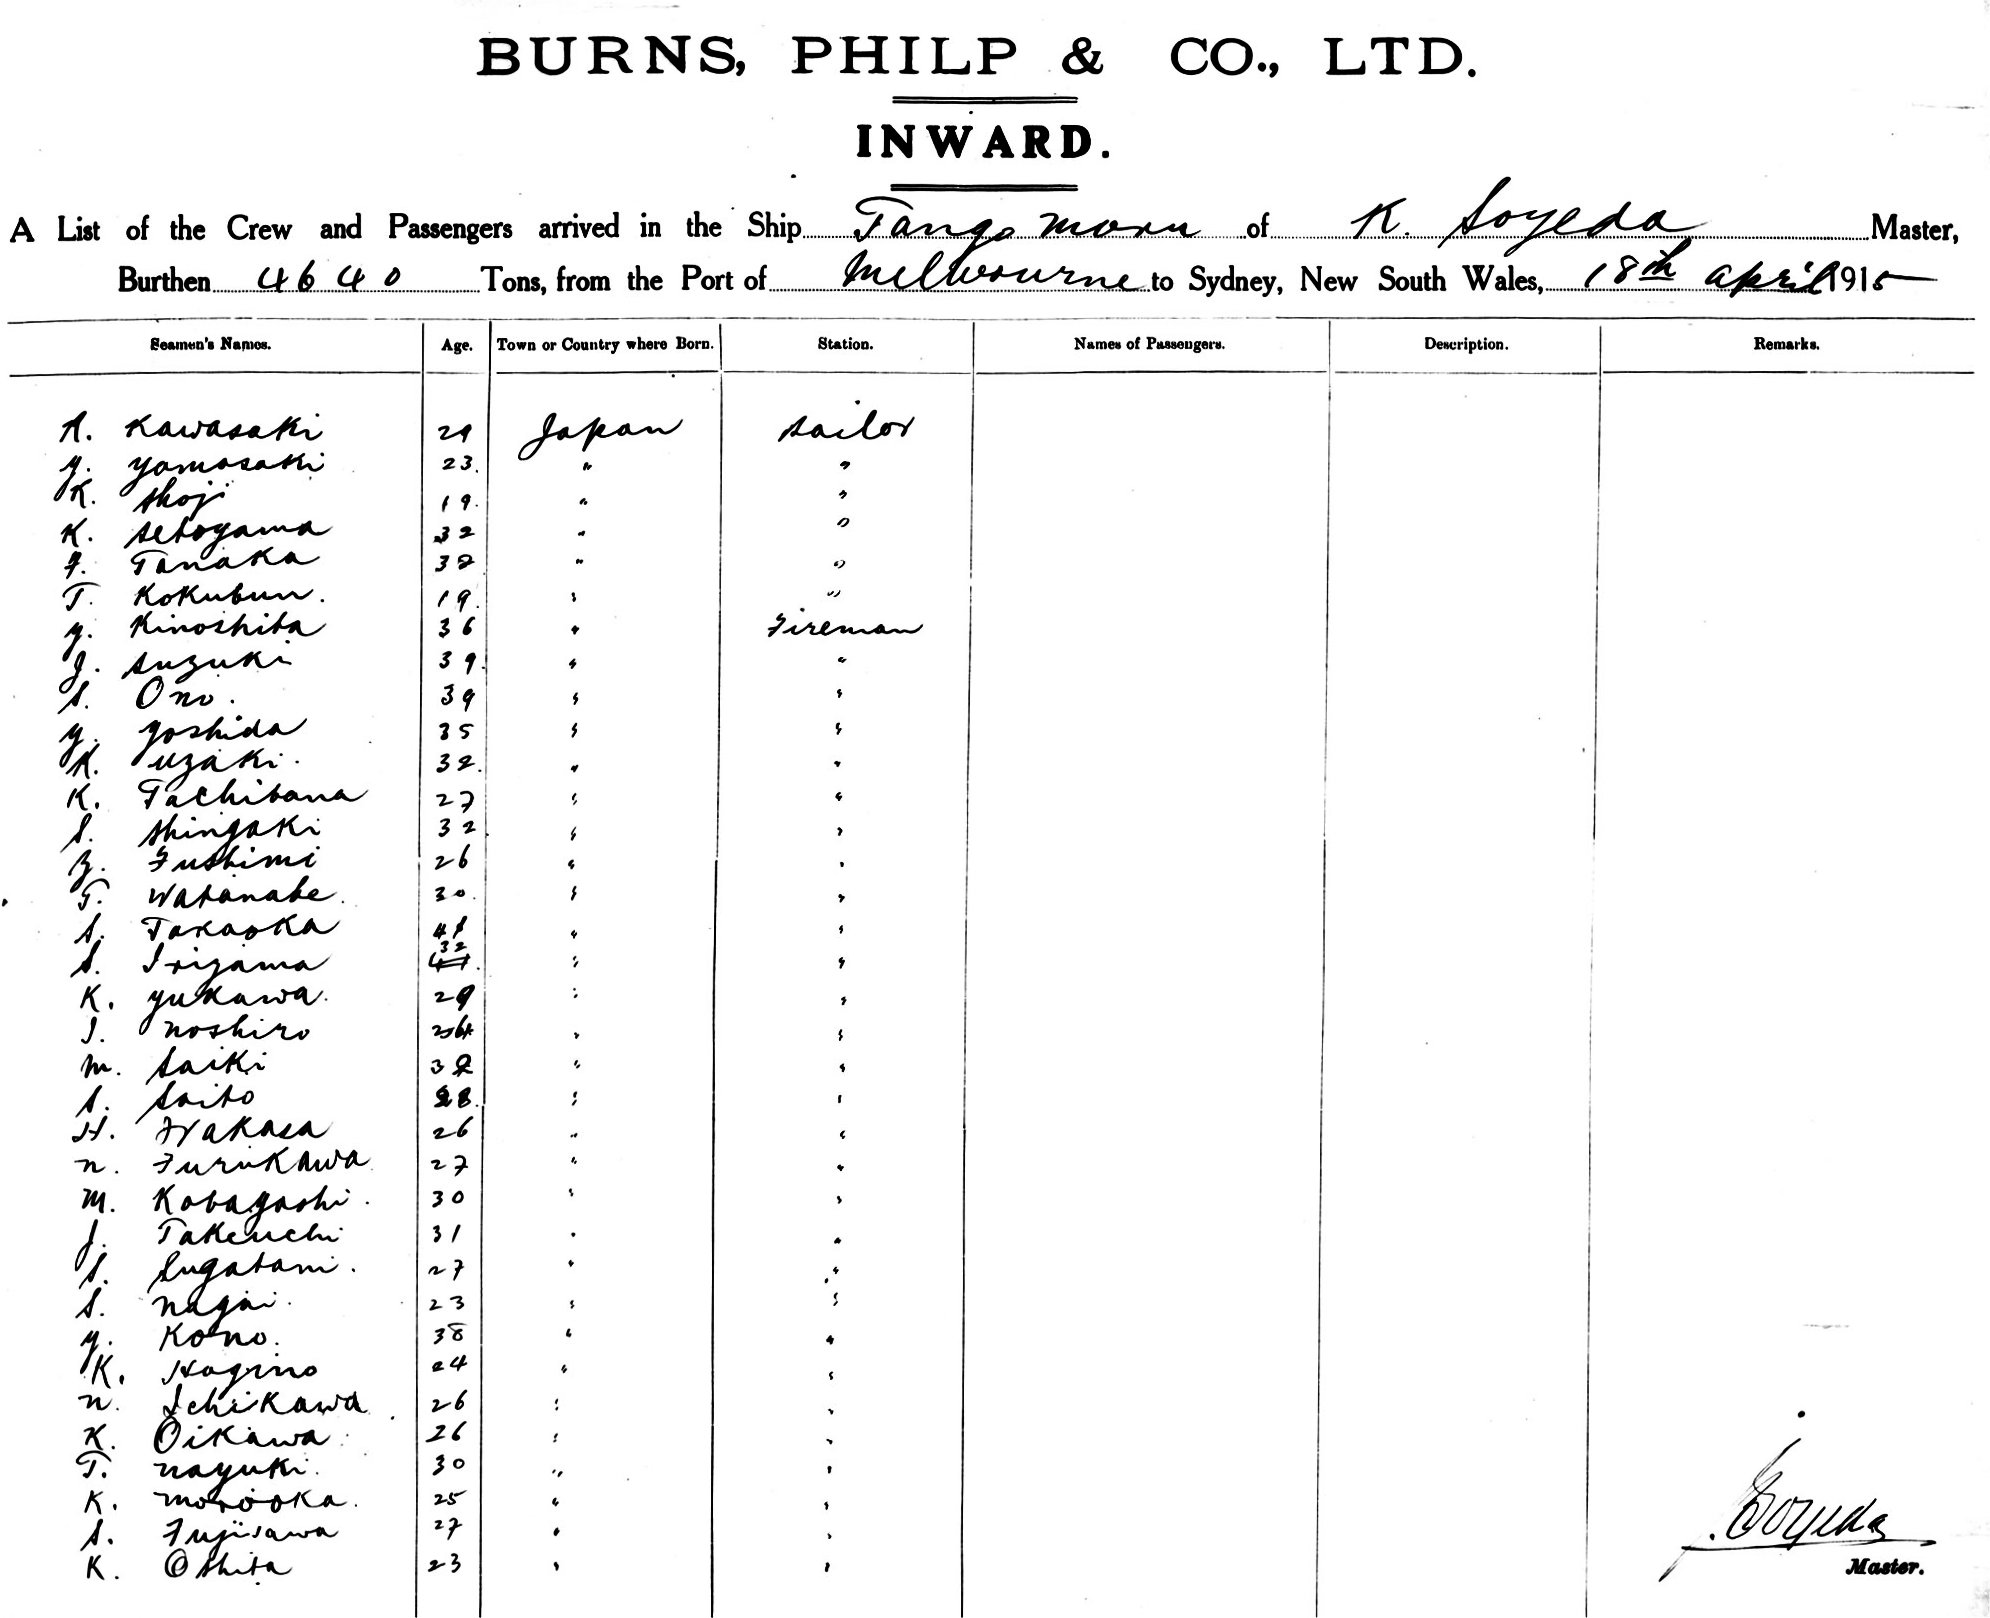 BURNS, PHILP & CO., LTD.
INWARD.
A List of the Crew and Passengers arrived in the Ship Tango Maru of K. Soyeda Master,
Burthen 4640 Tons, from the Port of Melbourne to Sydney, New South Wales, 18th April 1915
Seamen's Names. Age. Town or Country where Born. Station. Names of Passengers. Description. Remarks.
K. Kawasaki 29 Japan Sailor
Y. Yamasaki 23. " "
K. Shoji 19. " "
K. Setoyama 32 " "
F. Tanaka 32 " "
T. Kokubun. 19. " "
Y. Kinoshita 36 " Fireman
J. Suzuki 39. " "
S. Ono. 39 " "
Y. Yoshida 35 " "
K. Uzaki. 32. " "
K. Tachibana 27 " "
S. Shingaki 32 " "
Z. Fushimi 26 " "
T. Watanabe. 30. " "
S. Takaoka " "
S. Iriyama 32 " "
K. Yukawa. 29 " "
I. Noshiro " "
M. Saiki 32 " "
S. Saito 28. " "
H. Wakasa 26 " "
N. Furukawa 27 " "
M. Kobayashi. 30 " "
J. Takeuchi 31 " "
S. Sugatani. 27 " "
S. Nagai. 23 " "
Y. Kono. 38 " "
K. Hagino 24 " "
N. Ichikawa 26 " "
K. Oikawa 26 " "
T. Nayuki. 30 " "
K. Morooka. 25 " "
S. Fujisawa 27 " "
K. Oshita 23 " "
Soyeda
Master.